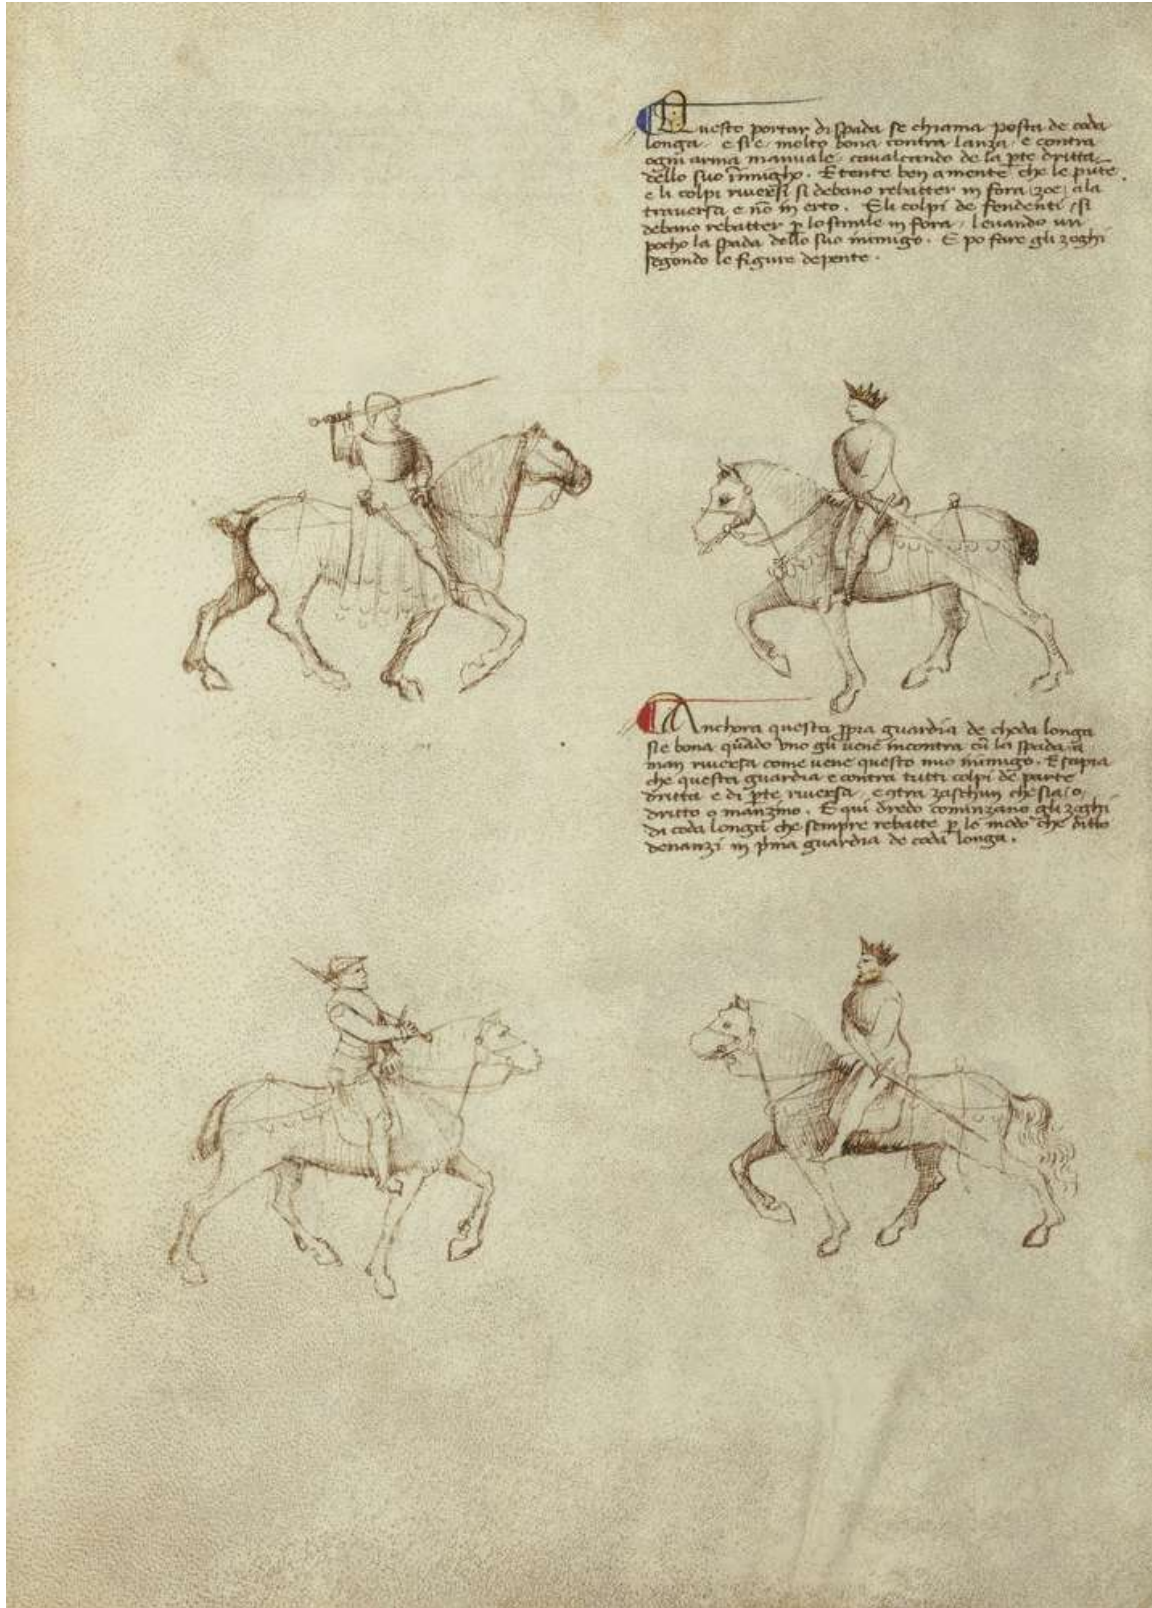 Questo portar di spada se chiama posta de coda
longa. e si e molto bona contra lanza e contra
ogni arma manuale. cavalcando de la pte dritta
dello suo inimigho. E tente ben a mente che le pute
e li colpi riversi si debano rebatter in fora zoe ala
traversa e nō in erto. E li colpi de fendenti si
debano rebatter p lo simile in fora. levando un
pocho la spada dello suo inimigo. E po fare gli zoghi
segondo le figure depente.
Anchora questa ppia guardia de choda longa
sie bona quādo uno gli vene incontra cū la spada a
man riversa come vene questo mio inimigo. E sapia
che questa guardia e contra tutti colpi de parte
dritta e di pte riversa. e contra zaschun che sia o
dritto o manzino. E qui dredo cominzano gli zoghi
di coda longa che sempre rebatte p lo modo che ditto
denanzi in pma guardia de coda longa.